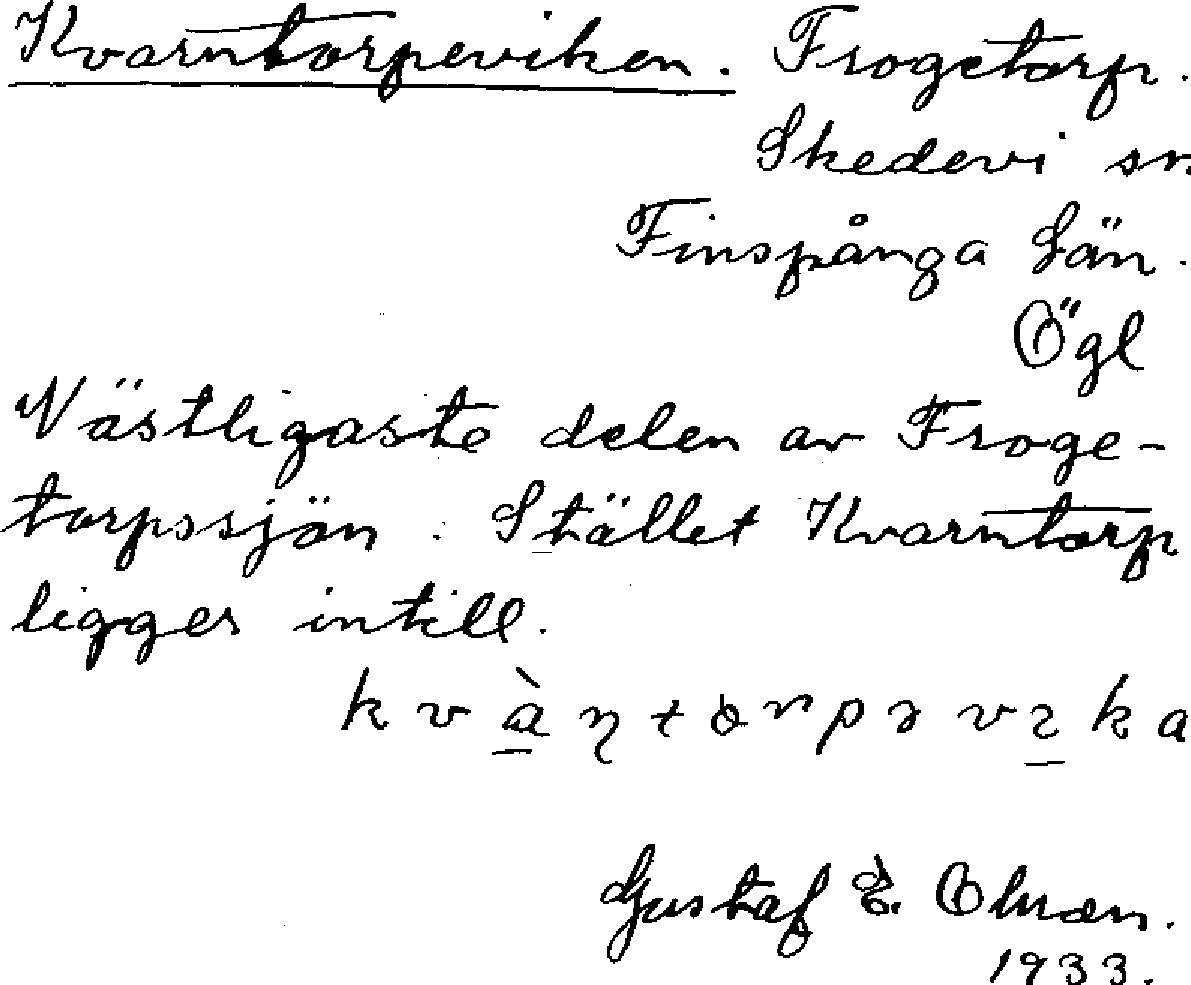 Kvarntorpeviken. Frogetorp.
Skedevi sn
Finspånga Län.
Ögl
Västligaste delen av Froge-
torpssjön. Stället Kvarntorp
ligger intill.
Gustaf E.
1933.